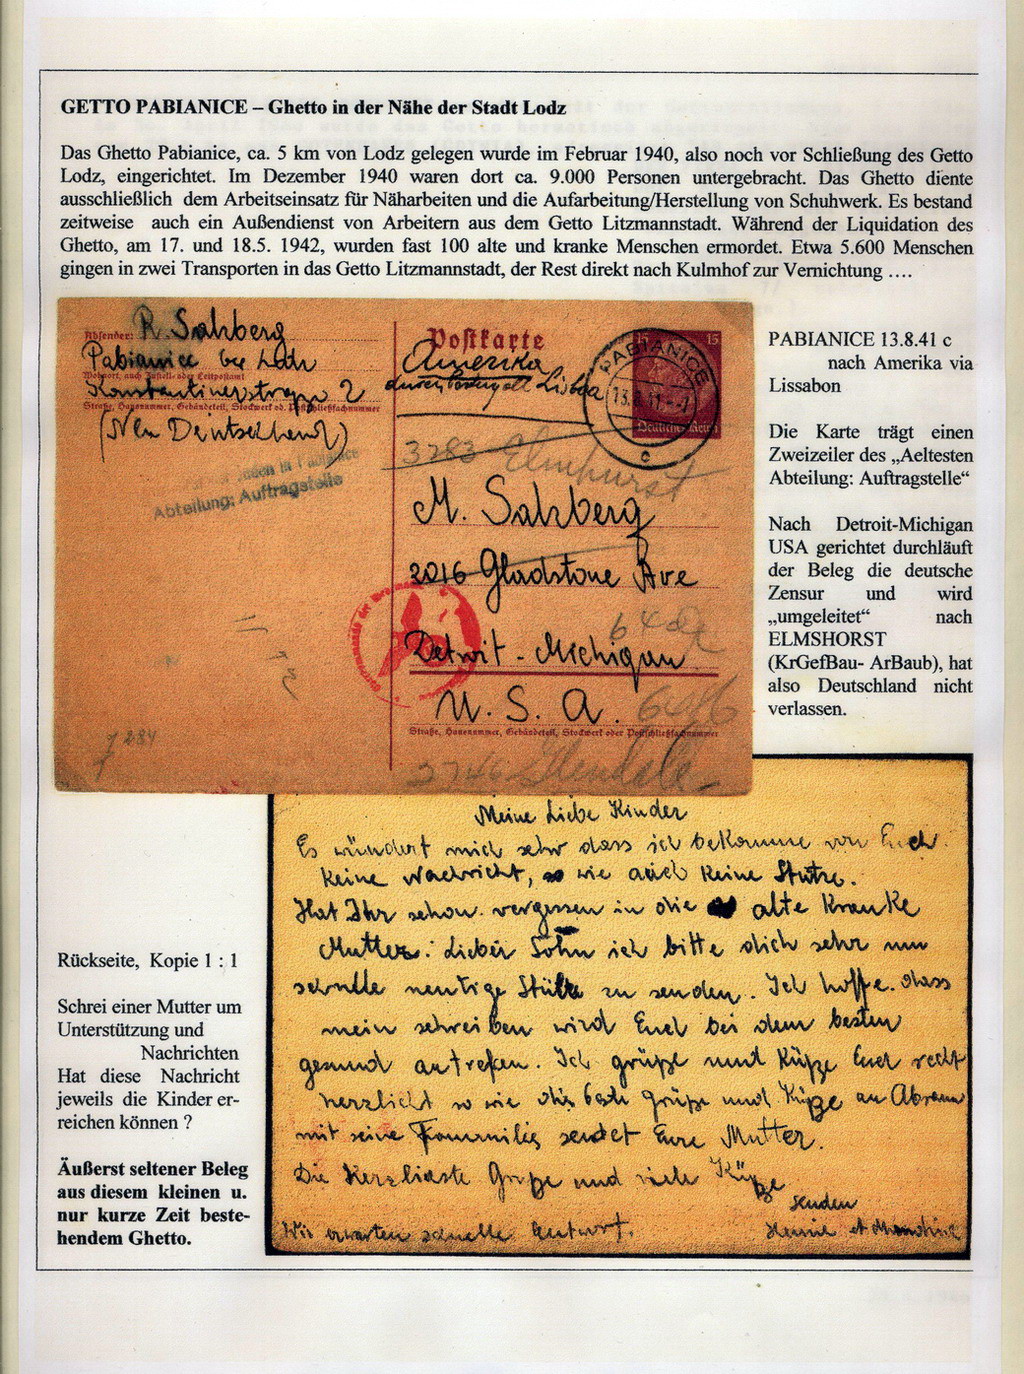 GETTO PABIANICE – Ghetto in der Nähe der Stadt Lodz
Das Ghetto Pabianice, ca. 5 km von Lodz gelegen wurde im Februar 1940, also noch vor Schließung des Getto
Lodz, eingerichtet. Im Dezember 1940 waren dort ca. 9.000 Personen untergebracht. Das Ghetto diente
ausschließlich dem Arbeitseinsatz für Näharbeiten und die Aufarbeitung/Herstellung von Schuhwerk. Es bestand
zeitweise auch ein Außendienst von Arbeitern aus dem Getto Litzmannstadt. Während der Liquidation des
Ghetto, am 17. und 18.5. 1942, wurden fast 100 alte und kranke Menschen ermordet. Etwa 5.600 Menschen
gingen in zwei Transporten in das Getto Litzmannstadt, der Rest direkt nach Kulmhof zur Vernichtung ....
Absender: R. Salzberg
Pabianice bei Lodz
Wohnort, auch Zustell- oder Leitpostamt
2
Straße, Hausnummer, Gebäudeteil, Stockwerk od. Postschließfachnummer
(Neu Deutschland)
Juden in Pabianice
Abteilung: Auftragstelle
Postkarte
Amerika
durch Portugall Lisboa
15 15
Deutsches Reich
PABIANICE
13.8.41
c
3283 Elmhurst
M. Salzberg
2016 Gladstone Ave
Detroit - Michigan
U. S. A.
Straße, Hausnummer, Gebäudeteil, Stockwerk oder Postschließfachnummer
3746 Glendale
7284
PABIANICE 13.8.41 c
nach Amerika via
Lissabon
Die Karte trägt einen
Zweizeiler des „Aeltesten
Abteilung: Auftragstelle“
Nach Detroit-Michigan
USA gerichtet durchläuft
der Beleg die deutsche
Zensur und wird
„umgeleitet“ nach
ELMSHORST
(KrGefBau- ArBaub), hat
also Deutschland nicht
verlassen.
Meine Liebe Kinder
Es wündert mich sehr dass ich bekomme von Euch
keine Nachricht, so wie auch keine Stütze.
Hat Ihr schon vergessen in die alte Kranke
Mutter. Lieber Sohn ich bitte dich sehr um
schnelle Stütze zu senden. Ich hoffe dass
mein schreiben wird Euch bei dem besten
gesund antrefen. Ich grüße und Küße Euch recht
herzlicht so wie die beste grüße und Küße an Abram
mit seine sendet Eure Mutter.
Die Herzlichste Grüße und viele Küße
senden
Wir erwarten schnelle Antwort.
Rückseite, Kopie 1 : 1
Schrei einer Mutter um
Unterstützung und
Nachrichten
Hat diese Nachricht
jeweils die Kinder er-
reichen können ?
Äußerst seltener Beleg
aus diesem kleinen u.
nur kurze Zeit beste-
hendem Ghetto.